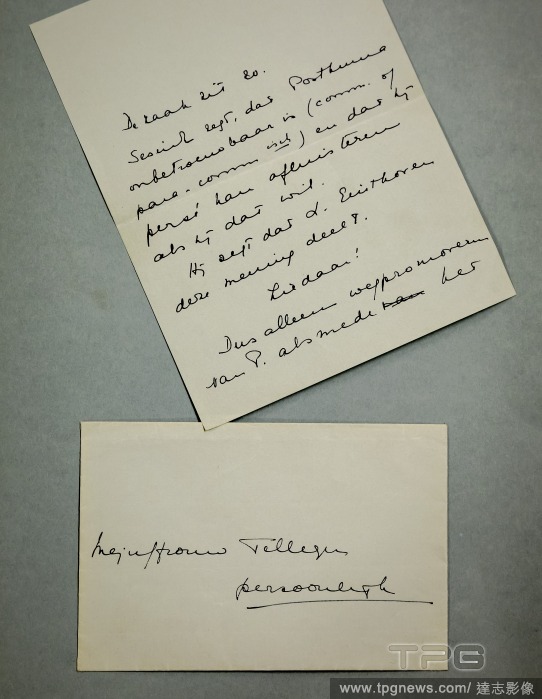 De zaak zit zo.
Sesink zegt, dat Posthuma
onbetrouwbaar is (comm. of
para-communisch) en dat hij
persé kan afluisteren
als hij dat wil.
Hij zegt dat L. Einthoven
deze mening deelt.
Ziedaar!
Dus alleen wegpromoveren
van P. alsmede het
Mejuffrouw Tellegen
persoonlijk
TPG
www.tpgnews.com/ 達志影像